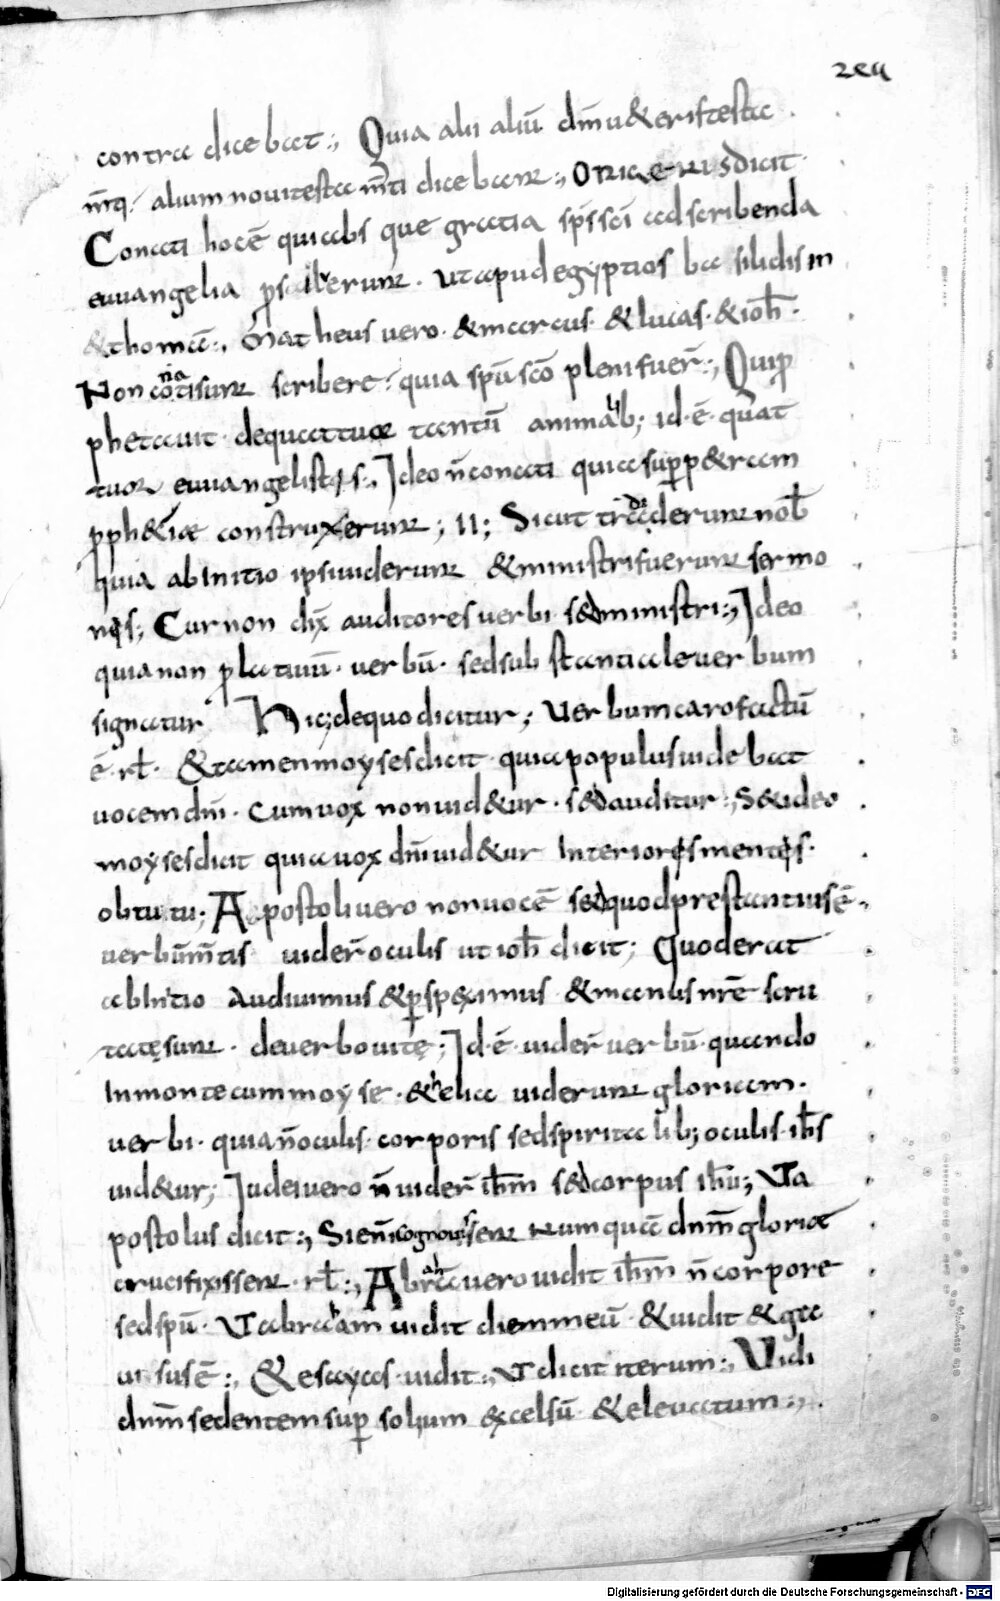 contra dicebat:, Quia alii aliū dm̄ u&eris testa
m̄tq· alium novi testam̄ti dicebant:, ORIGENIS dicit
Conati hocē qui abs que gratia sp̄s sc̄i ad scribenda
euuangelia ꝓsilierunt. Ut apud egyptios basilidis in
&thomā:, Matheus vero· &marcus· &lucas· &ioh̄·
Non conatisunt scribere· quia sp̄u sc̄o pleni fuer̄:, Qui ꝓ
phetauit· dequattuor tantū animalib; id·ē· quat
tuor euuangelistis:, Ideo n̄ conati qui a sup̱ p&ram
ꝓph&iae construxerunt; II; Sicut tradiderunt nob̄
quia abinitio ipsiuiderunt &ministrifuerunt sermo
nis; Cur non dix̄ auditores uerbi· sedministri:, Ideo
quia non ꝓlatiuū· verbū· sedsubstantiale verbum
signatur Hic; dequo dicitur; Uerbumcarofactū
ē· rł· &tamenmoysesdicit· quia populusuidebat
vocem dn̄i· cumvox non uid&ur· sedauditur:, Sedideo
moysesdicit quia uox dn̄i uid&ur Interiorismentis·
obtutu; Apostoli vero non uocē sedquodprestantiusē·,
uerbūm̄tis uider̄ oculis ut ioh̄ dicit; Quoderat
abInitio audiuimus &ꝑspeximus &manus nr̄e scru
tatesunt· deuerbouitę; Id·ē·uider̄ uerbū·quando
Inmontecummoyse·&helia uiderunt gloriam·
uerbi· quia n̄ oculis· corporis sedspiritalib; oculis· ih̄s
uid&ur; Iudeiuero n̄ uider̄ ih̄m sedcorpus ih̄u; Ut a
postolus dicit:, Sienī cognouissent Numquā dnm̄ gloriae
crucifixissent· rł:, Abrahā uero uidit ih̄m n̄ corpore
sedspū· Ut abraham uidit diemmeū· &uidit &ga
uisusē:, &esayas·uidit:, Ut dicit iterum:, Vidi
dnm̄ sedentem sup̱ solium excelsū &eleuatum:,
Digitalisierung gefördert durch die Deutsche Forschungsgemeinschaft · DFG